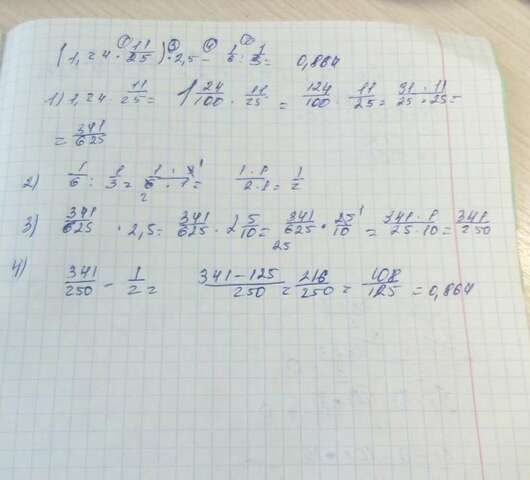 (1,24 · 11/25) · 2,5 − 1/6 : 1/3 = 0,864
1) 1,24 11/25 = 1 24/100 · 11/25 = 124/100 · 11/25 = 31 · 11/25 · 25 =
= 341/625
2) 1/6 : 1/3 = 1 · 3/6 · 1 = 1 · 1/2 · 1 = 1/2
3) 341/625 · 2,5 = 341/625 · 2 5/10 = 341/625 · 25/10 = 341 · 1/25 · 10 = 341/250
4) 341/250 − 1/2 = 341 − 125/250 = 216/250 = 108/125 = 0,864